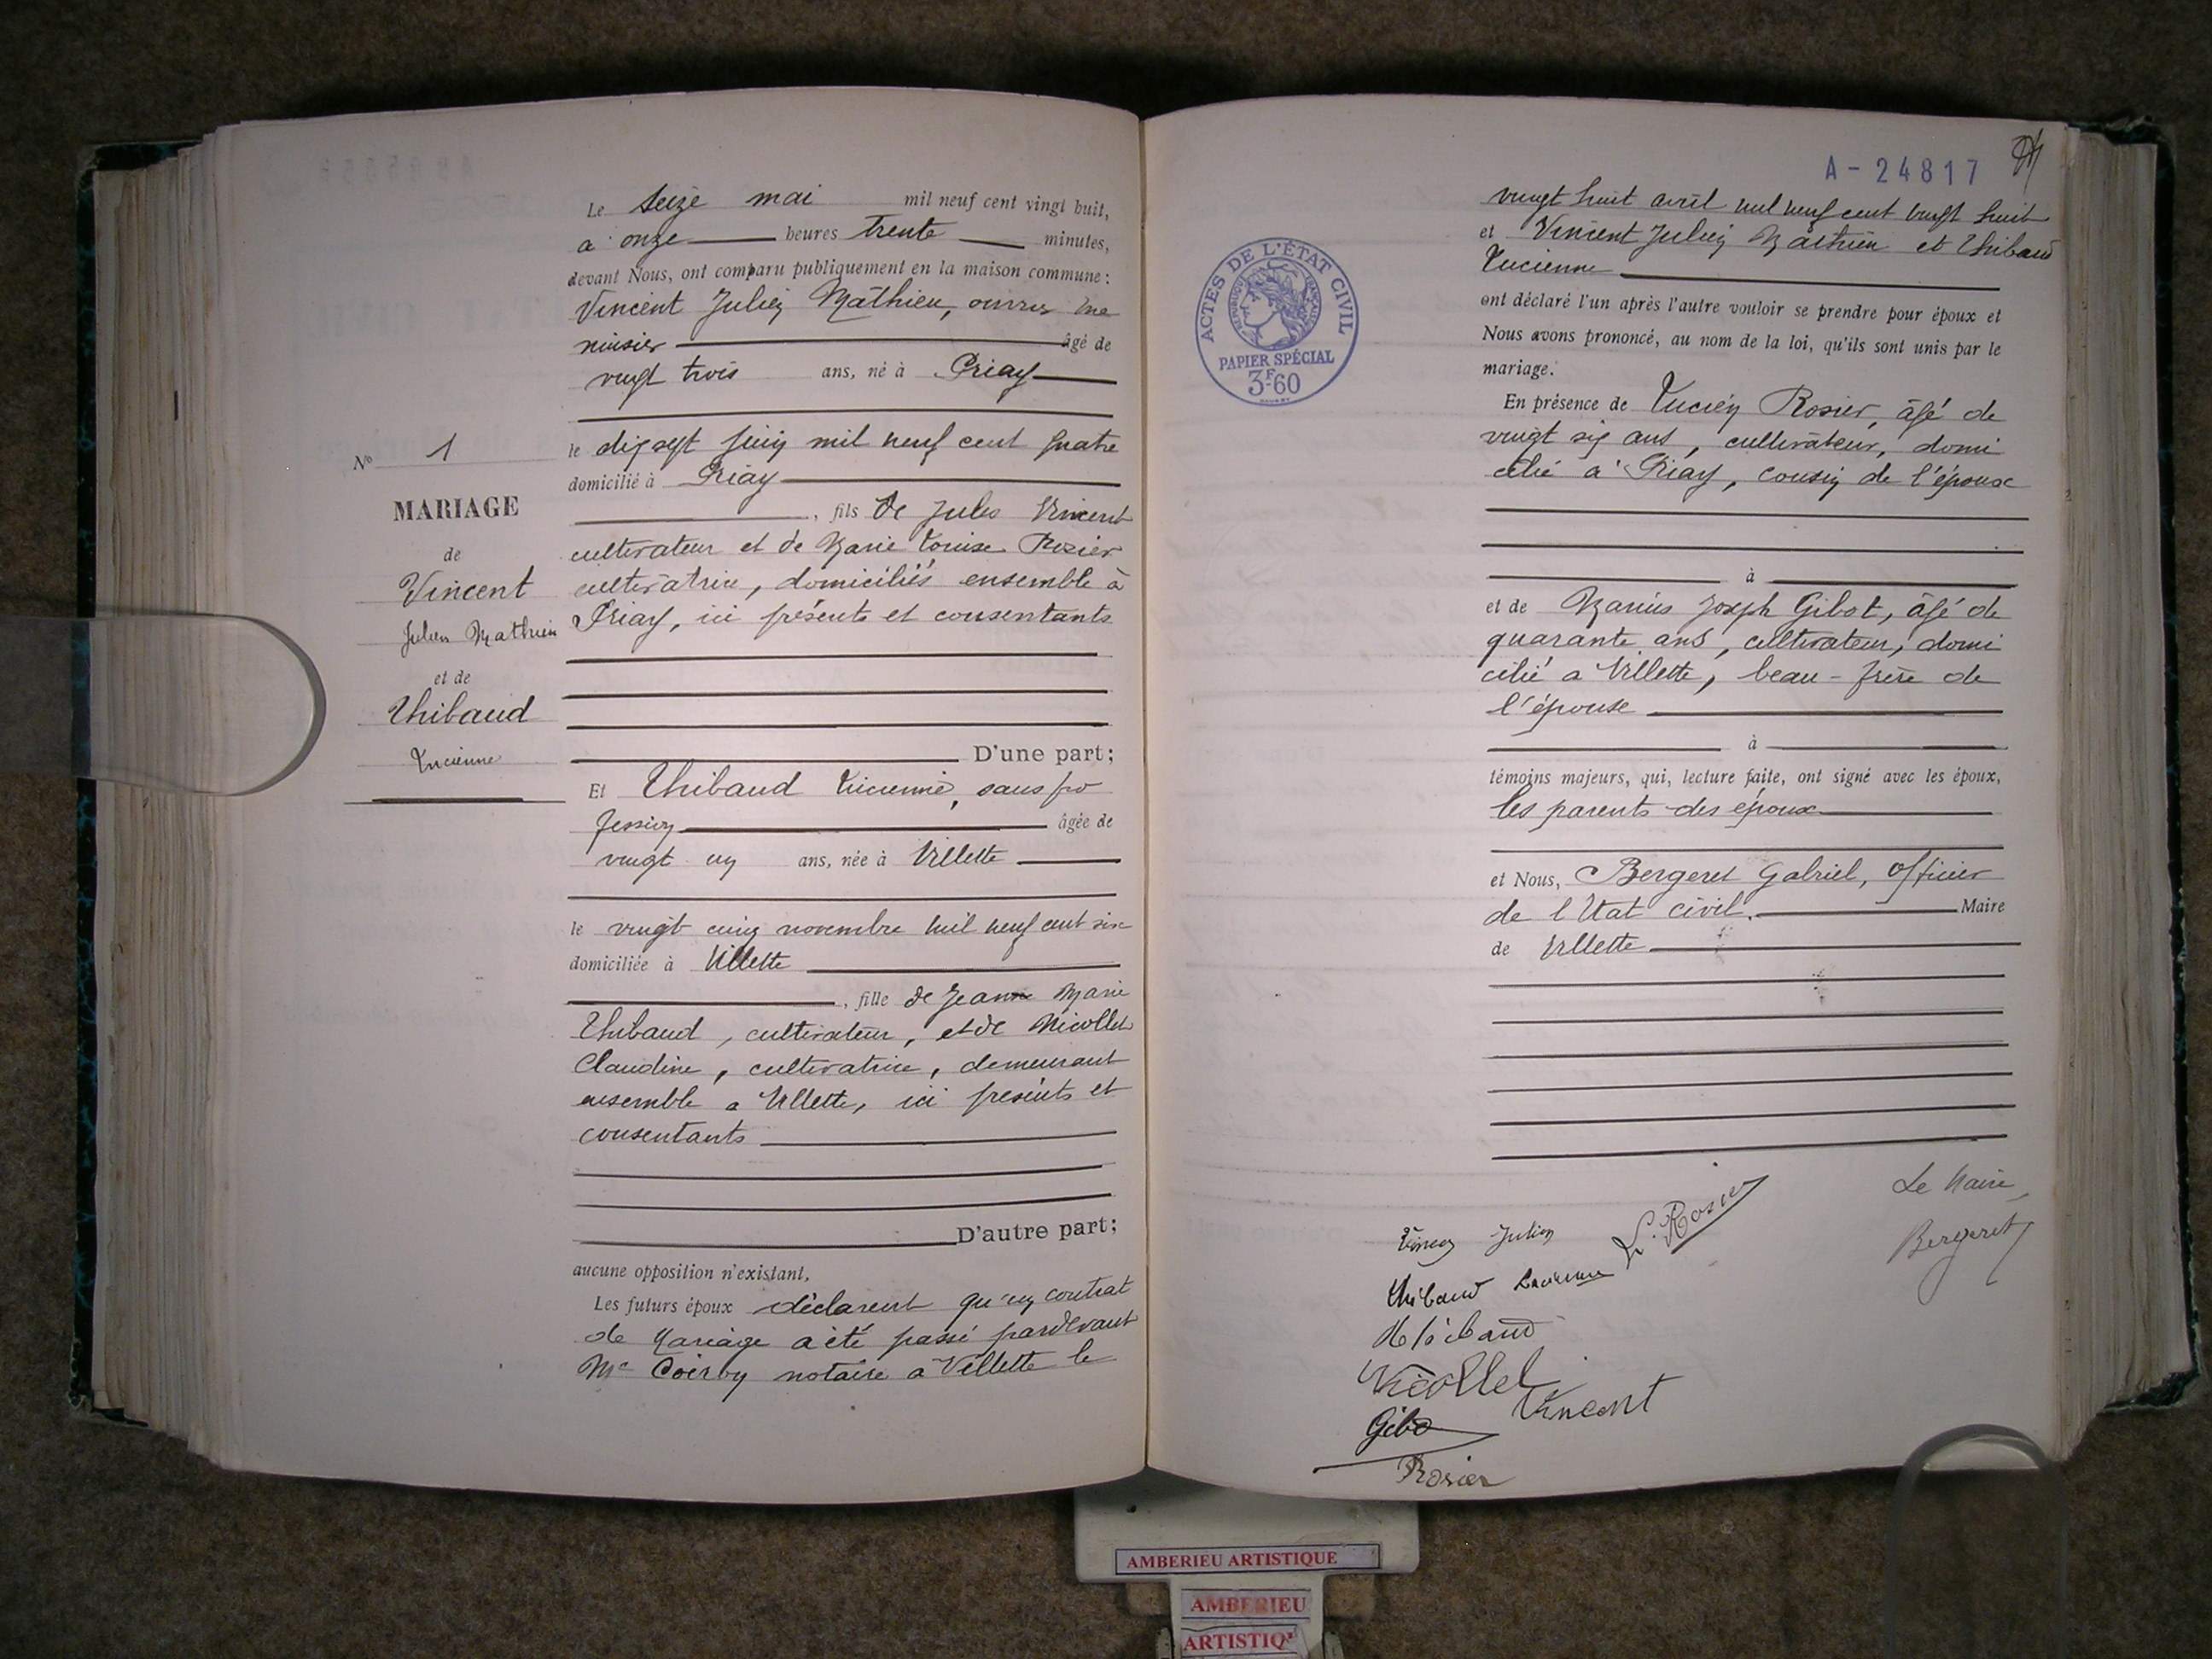 Le seize mai mil neuf cent vingt huit,
a onze heures trente minutes,
devant Nous, ont comparu publiquement en la maison commune:
Vincent Julien Mathieu, ouvrier me
nuisier âgé de
vingt trois ans, né à Priay
le dix sept juin mil neuf cent quatre
domicilié à Priay
, fils de Jules Vincent
cultivateur et de Marie Louise Rosier
cultivatrice, domiciliés ensemble à
Priay, ici présents et consentants
D'une part;
Et Thibaud Lucienne, sans pro
fession âgée de
vingt un ans, née à Villette
le vingt cinq novembre mil neuf cent six
domiciliée à Villette
, fille de Jeanne Marie
Thibaud, cultivateur, et de Nicollet
Claudine, cultivatrice, demeurant
ensemble a Villette, ici présents et
consentants
D'autre part;
aucune opposition n'existant,
Les futurs époux déclarent qu'un contrat
de Mariage a été passé pardevant
Me notaire a Villette le
No 1
MARIAGE
de
Vincent
Julien Mathieu
et de
Thibaud
Lucienne
A-24817
vingt huit avril mil neuf cent vingt huit
et Vincent Julien Mathieu et Thibaud
Lucienne
ont déclaré l'un après l'autre vouloir se prendre pour époux et
Nous avons prononcé, au nom de la loi, qu'ils sont unis par le
mariage.
En présence de Lucien Rosier, âgé de
vingt six ans, cultivateur, domi
cilié a Priay, cousin de l'époux
à
et de Marius Joseph Gibot, âgé de
quarante ans, cultivateur, domi
cilié a Villette, beau-frère de
l'épouse
à
témoins majeurs, qui, lecture faite, ont signé avec les époux,
les parents des époux
et Nous, Bergeret Gabriel, officier
de l'Etat civil. Maire
de Villette
ACTES DE L'ÉTAT CIVIL
RÉPUBLIQUE FRANÇAISE
PAPIER SPÉCIAL
3F60
Le Maire
Bergeret
Vincent Julien
L. Rosier
Thibaud Lucienne
Thibaud
Nicollet
Vincent
Gibo
Rosier
AMBERIEU ARTISTIQUE
AMBERIEU
ARTISTIQ